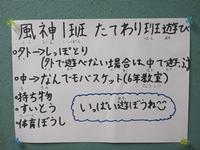 風神1班 たてわり班遊び
・外→しっぽとり
(外で遊べない場合は、中で遊ぶ)
・中→なんでもバスケット(6年教室)
・持ち物
・すいとう
・体育ぼうし
いっぱい遊ぼうね